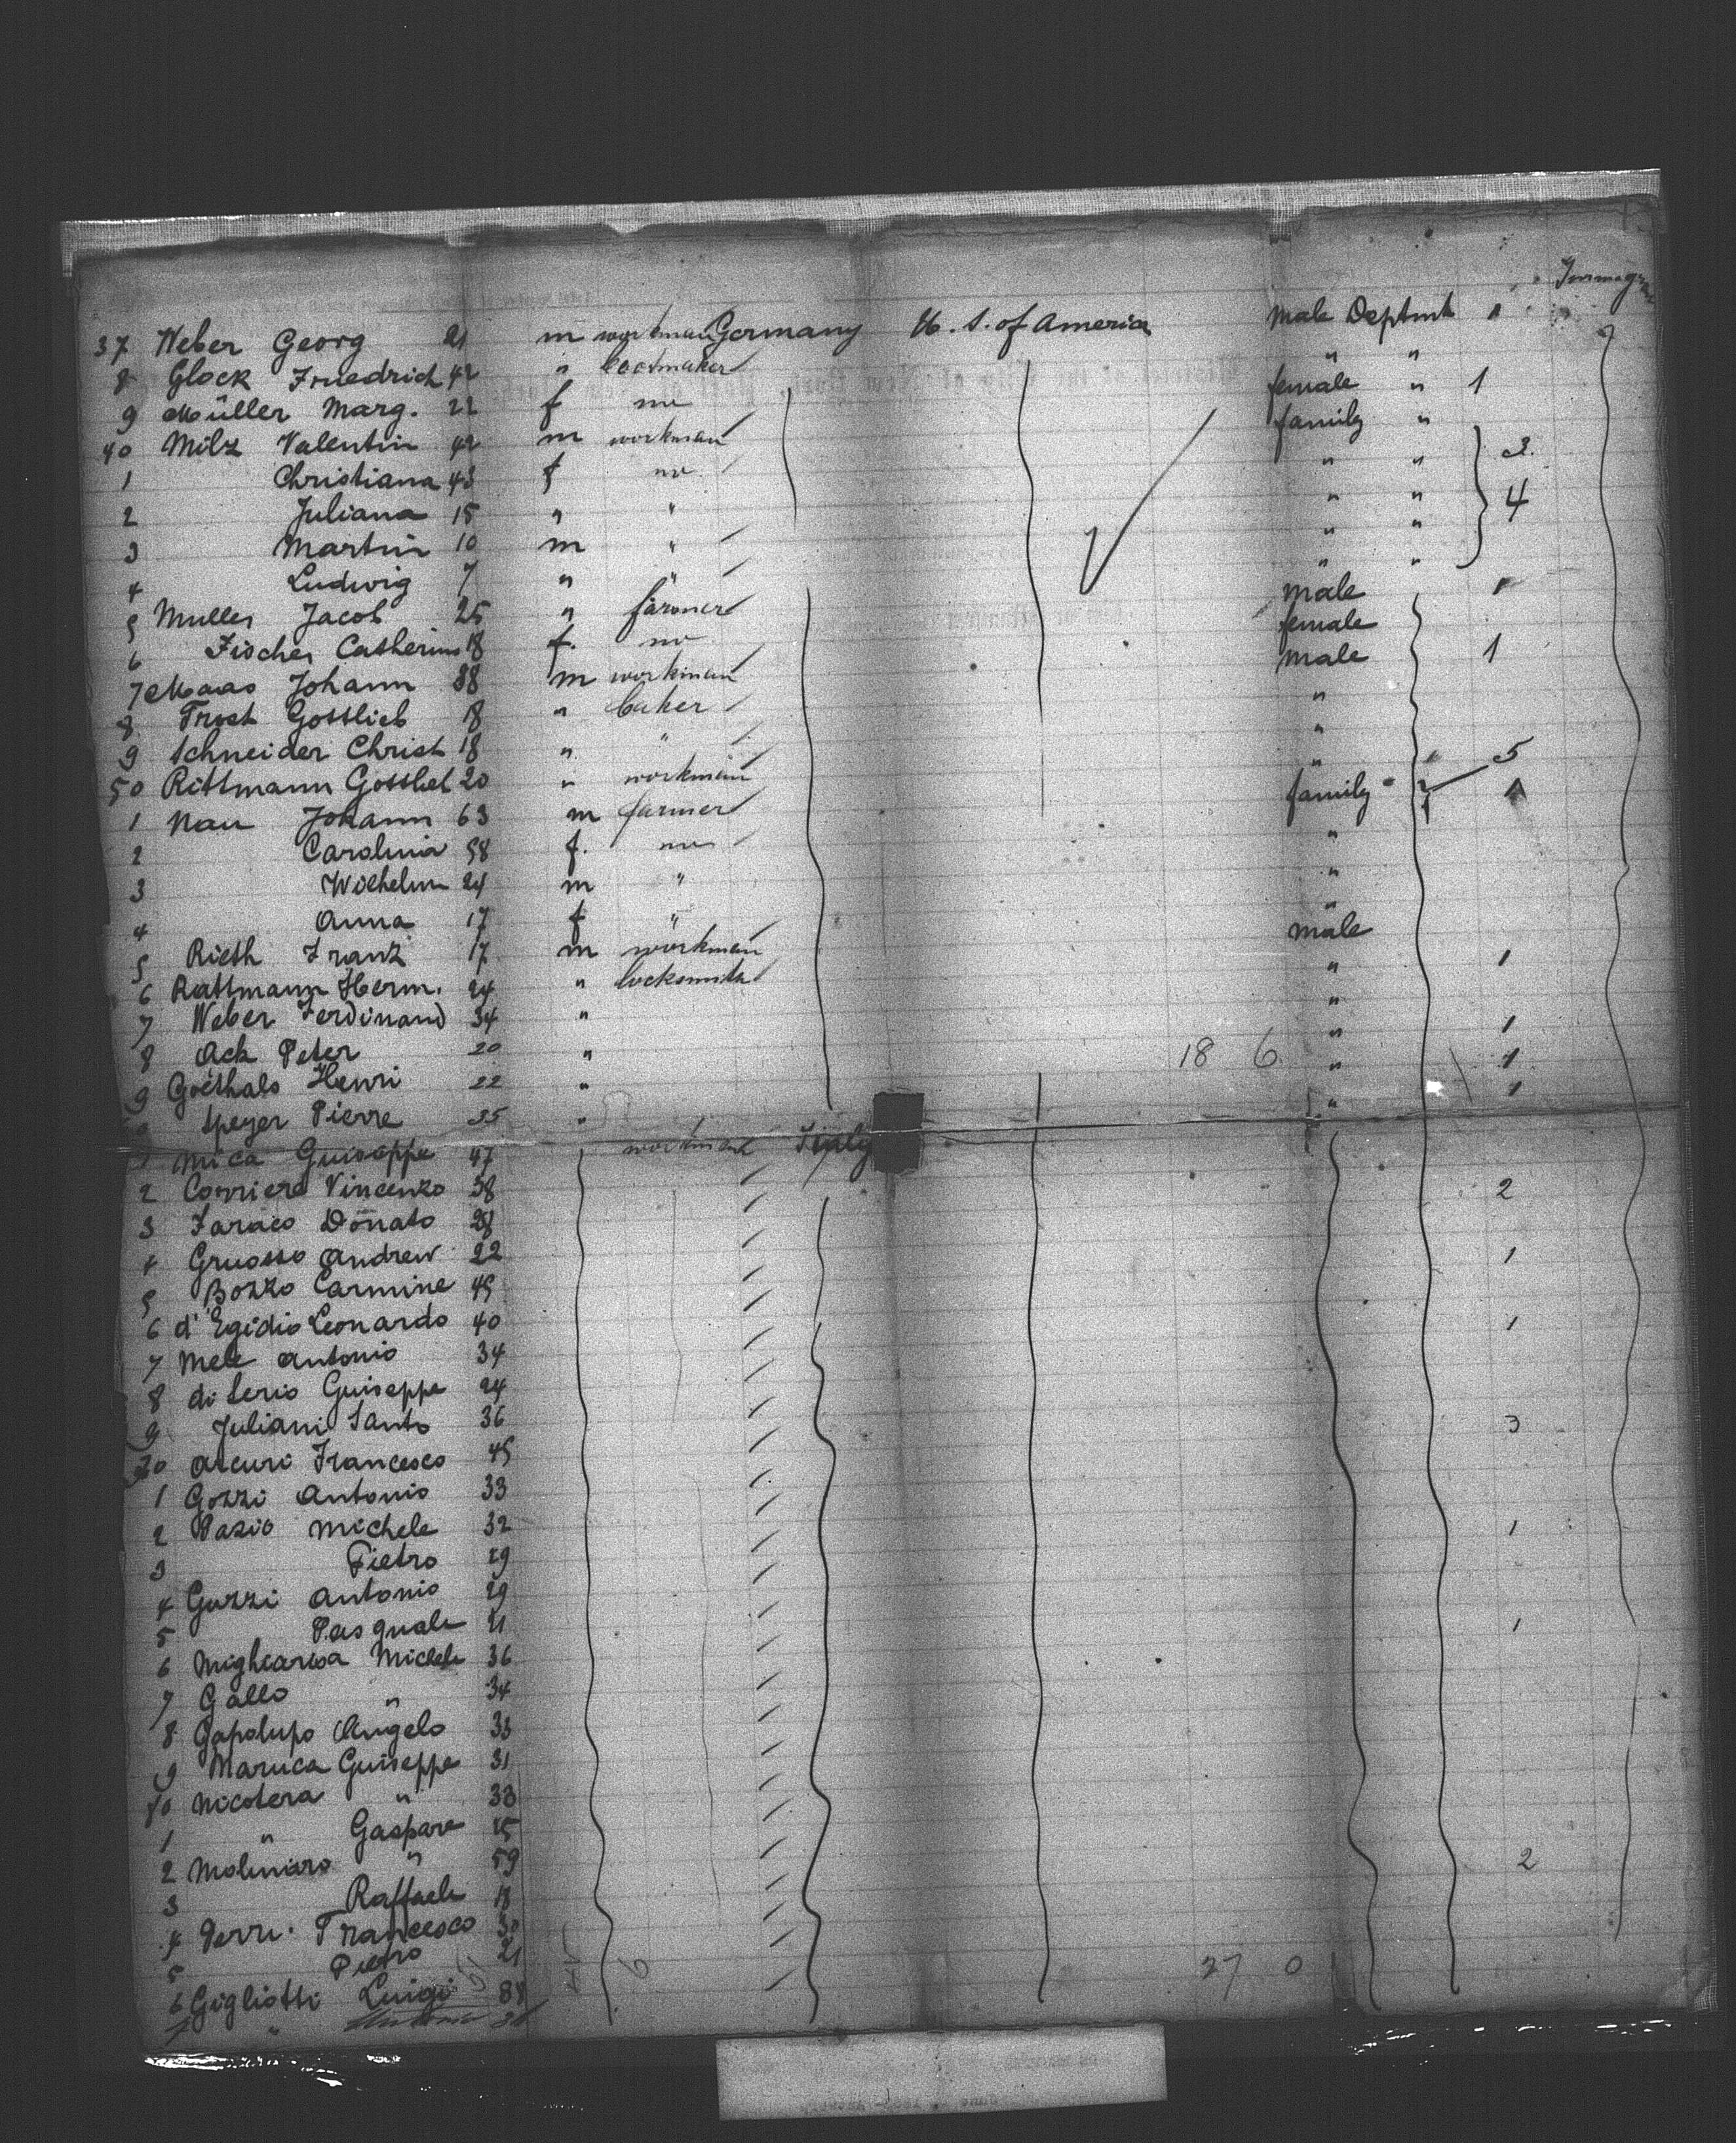 Immigr
37 Weber Georg 21 m workman Germany U. S. of America male Deptmt 1
8 Glock Friedrich 42 " bootmaker " "
9 Müller Marg. 22 f no female " 1
40 Milz Valentin 42 m workman family "
1 Christiana 43 f no " " 2.
2 Juliana 15 " " " " 4
3 Martin 10 m " " "
4 Ludwig 7 " " " "
5 Muller Jacob 25 " farmer male 1
6 Fischer Catherina 18 f. no female
7 Maas Johann 38 m workman male 1
8 Trost Gottlieb 18 " baker "
9 Schneider Christ 18 " " "
50 Rittmann Gottlieb 20 " workman " 5
1 Nau Johann 63 m farmer family
2 Carolina 58 f. no "
3 Wilhelm 24 m " "
4 Anna 17 f " "
5 Rieth Franz 17 m workman male
6 Rattmann Herm. 24 " locksmith " 1
7 Weber Ferdinand 34 " "
8 Ack Peter 20 " 18 6 " 1
9 Goethals Henri 22 " " 1
Speyer Pierre 35 " " 1
Mica Guiseppe 47 workman
2 Corriere Vincenzo 38 2
3 Faraco Donato 28
4 Gruosso Andrew 22 1
5 Bozzo Carmine 45
6 d'Egidio Leonardo 40 1
7 Mele Antonio 34
8 di Serio Guiseppe 24
9 Juliani Santo 36 3
70 Arcuri Francesco 45
1 Gozzi Antonio 33
2 Pazio Michele 32 1
3 Pietro 29
4 Guzzi Antonio 29
5 Pasquale 21 1
6 Michele 36
7 Gallo " 34
8 Gapolupo Angelo 33
9 Maruca Guiseppe 31
80 Nicotera " 33
1 " Gaspare 15
2 Molinaro " 59 2
3 Raffaele 18
4 Perri Francesco 30
5 Pietro 21
6 Gigliotti Luigi 38 6 27 0
7 "